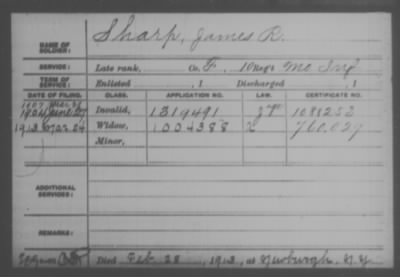 NAME OF SOLDIER: Sharp, James R.
SERVICE: Late rank, Co. F, 10 Reg't Mo Inf
TERM OF SERVICE: Enlisted , 1 Discharged , 1
DATE OF FILING. CLASS. APPLICATION NO. LAW. CERTIFICATE NO.
1904 June 27 Invalid, 1319491 1081253
1913 Mar 24 Widow, 1004388 760029
Minor,
ADDITIONAL SERVICES:
REMARKS:
Died Feb 28, 1913, at Newburgh, N.Y.